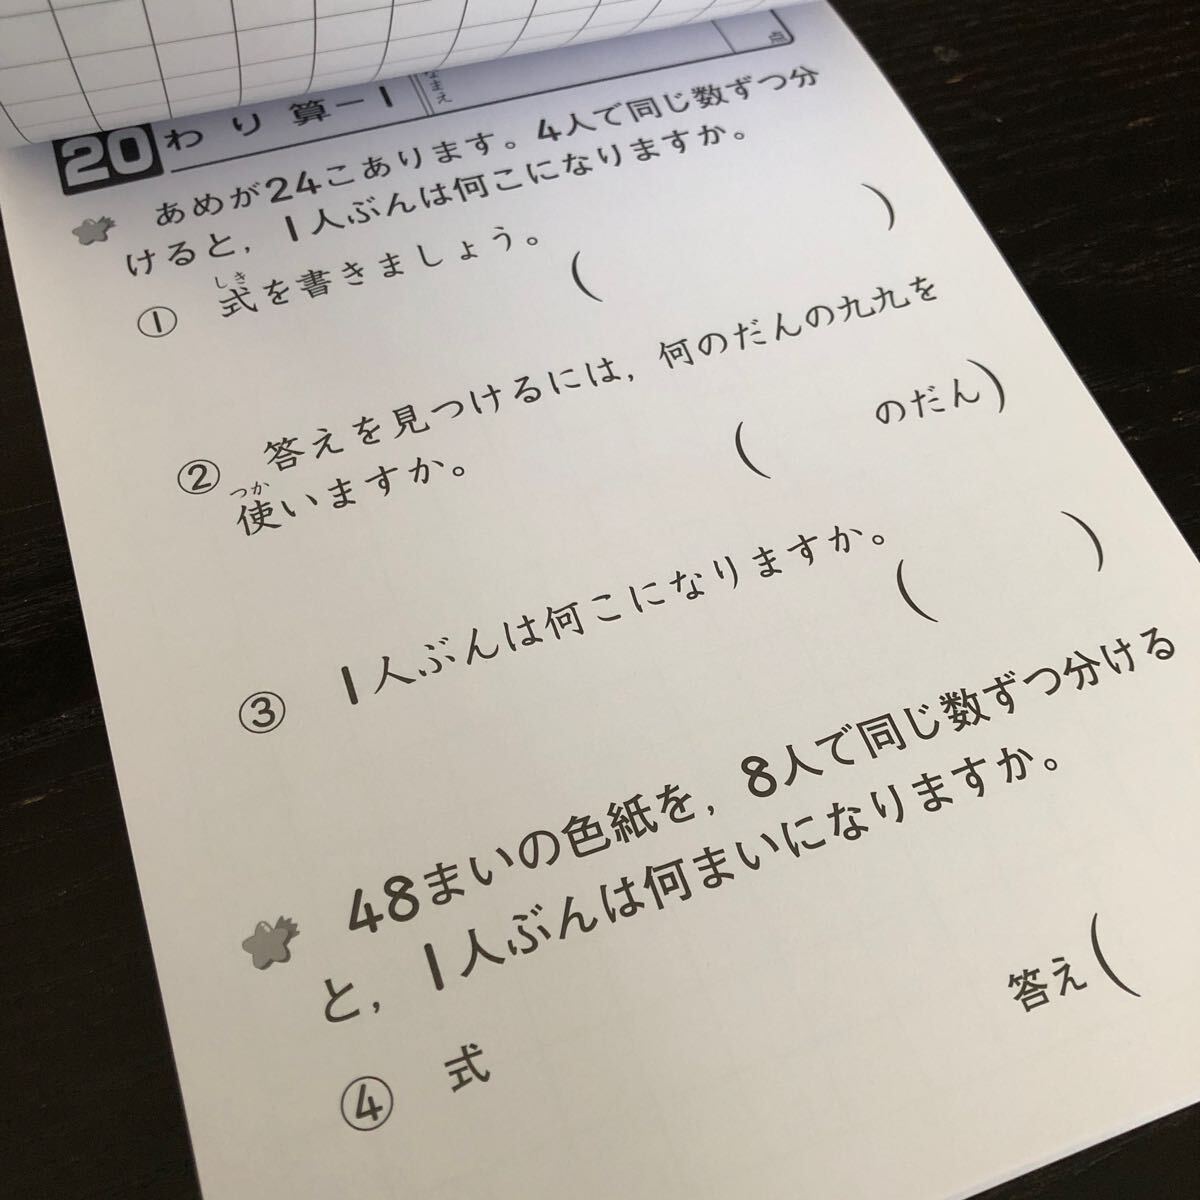 20 わり算-1
なまえ
点
あめが24こあります。4人で同じ数ずつ分
けると，1人ぶんは何こになりますか。
① 式を書きましょう。
しき
( )
② 答えを見つけるには，何のだんの九九を
使いますか。
つか
( のだん)
③ 1人ぶんは何こになりますか。
( )
48まいの色紙を，8人で同じ数ずつ分ける
と，1人ぶんは何まいになりますか。
④ 式
答え(